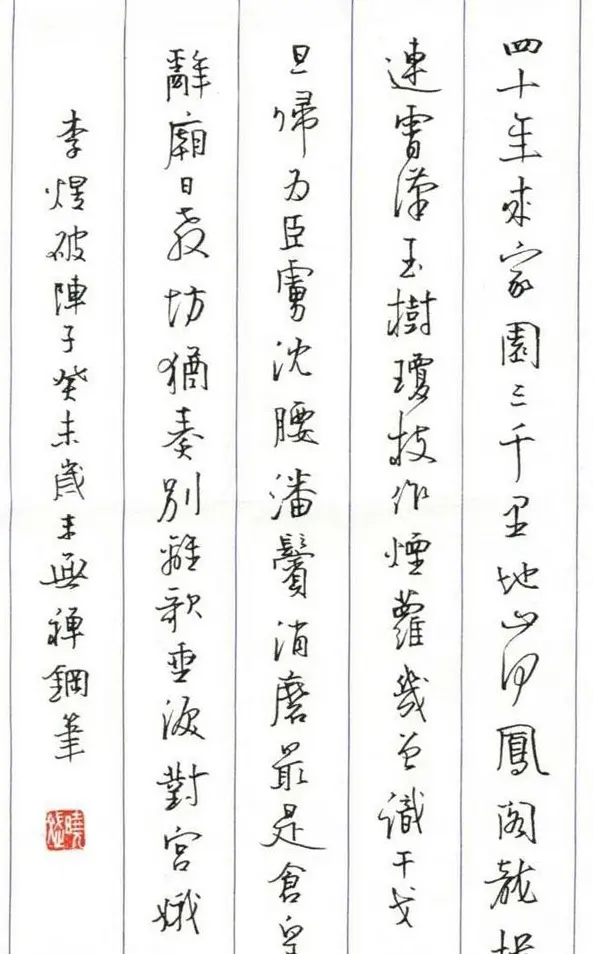 四十年來家園三千里地山河鳳閣龍樓
連霄漢玉樹瓊枝作煙蘿幾曾識干戈一
旦歸為臣虜沈腰潘鬢消磨最是倉皇
辭廟日教坊猶奏別離歌垂淚對宮娥
李煜破陣子癸未歲末無禪鋼筆